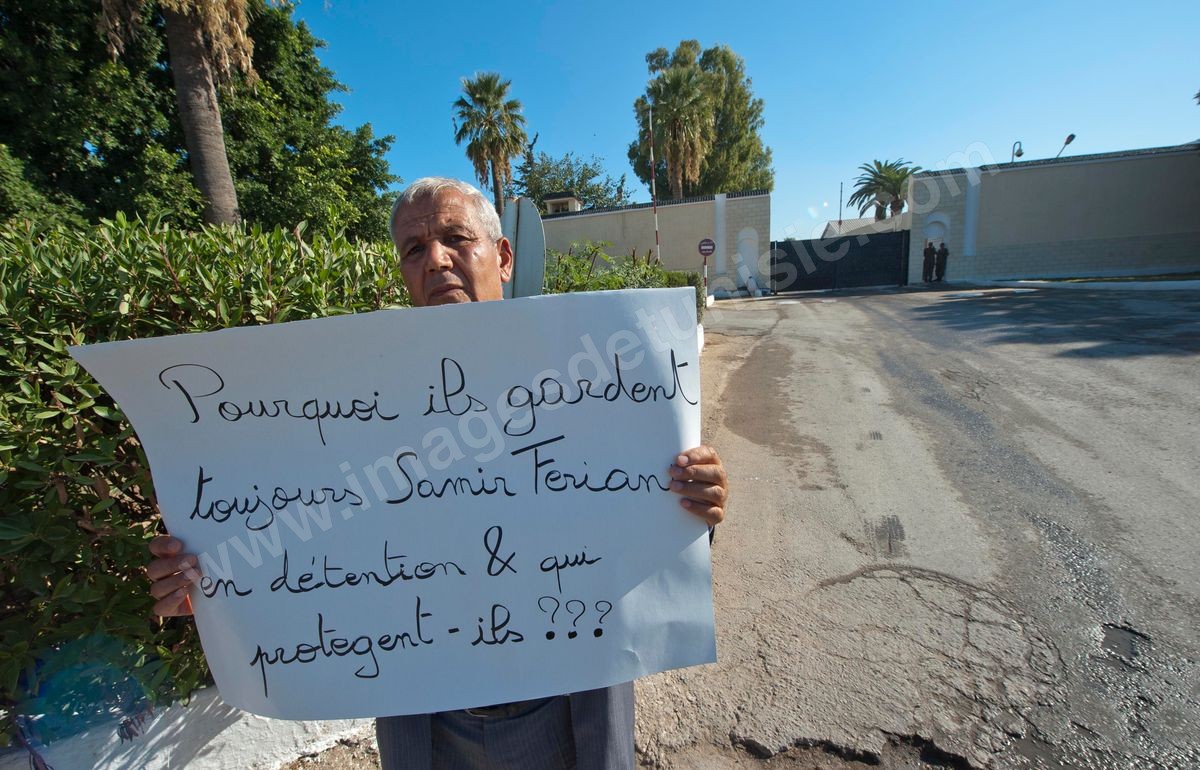 Pourquoi ils gardent
toujours Samir Ferian
en détention & qui
protègent-ils ???
www.imagesdetunisie.com